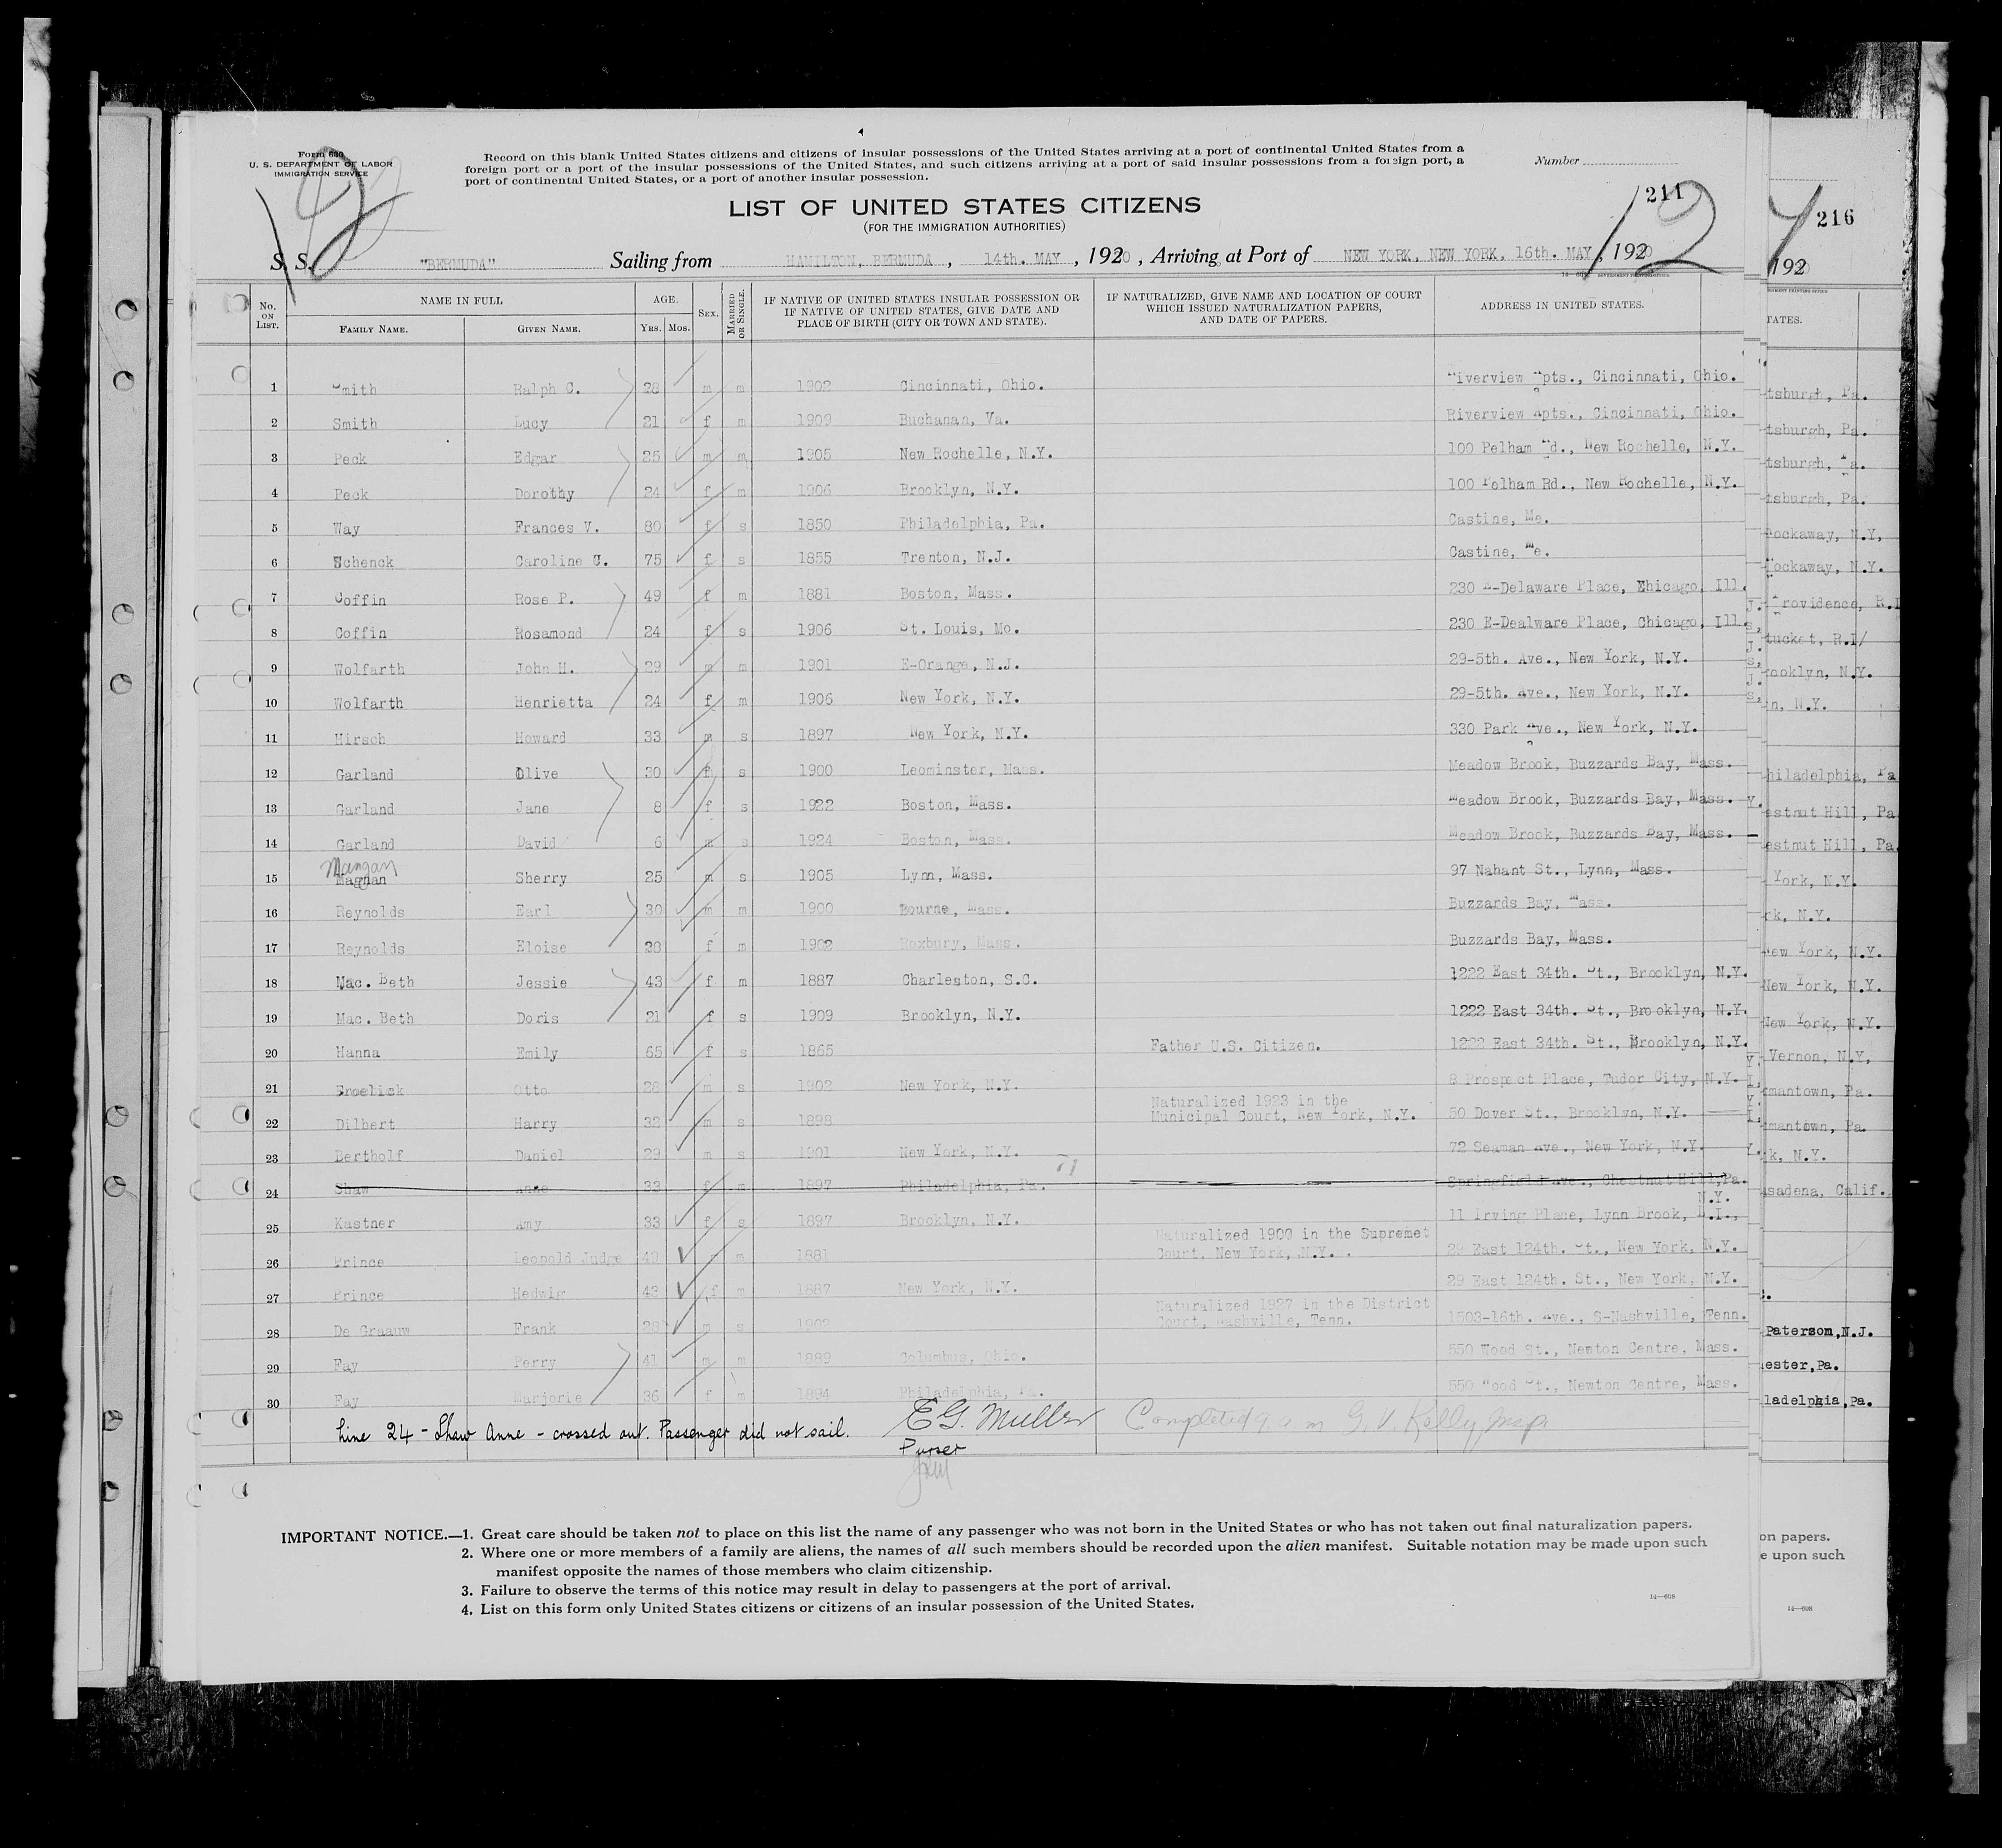 Form 630
U. S. DEPARTMENT OF LABOR
IMMIGRATION SERVICE
Record on this blank United States citizens and citizens of insular possessions of the United States arriving at a port of continental United States from a
foreign port or a port of the insular possessions of the United States, and such citizens arriving at a port of said insular possessions from a foreign port, a
port of continental United States, or a port of another insular possession.
Number
12
211
12
216
LIST OF UNITED STATES CITIZENS
(FOR THE IMMIGRATION AUTHORITIES)
S. S. "BERMUDA" Sailing from HAMILTON, BERMUDA , 14th. MAY , 1920 , Arriving at Port of NEW YORK, NEW YORK, 16th. MAY , 1920
192
No. ON LIST. NAME IN FULL FAMILY NAME. GIVEN NAME. AGE. YRS. MOS. SEX. MARRIED OR SINGLE. IF NATIVE OF UNITED STATES INSULAR POSSESSION OR IF NATIVE OF UNITED STATES, GIVE DATE AND PLACE OF BIRTH (CITY OR TOWN AND STATE). IF NATURALIZED, GIVE NAME AND LOCATION OF COURT WHICH ISSUED NATURALIZATION PAPERS, AND DATE OF PAPERS. ADDRESS IN UNITED STATES.
TATES.
1 Smith Ralph C. 28 m m 1902 Cincinnati, Ohio. Riverview Apts., Cincinnati, Ohio.
2 Smith Lucy 21 f m 1909 Buchanan, Va. Riverview Apts., Cincinnati, Ohio.
3 Peck Edgar 25 m m 1905 New Rochelle, N.Y. 100 Pelham Rd., New Rochelle, N.Y.
4 Peck Dorothy 24 f m 1906 Brooklyn, N.Y. 100 Pelham Rd., New Rochelle, N.Y.
5 Way Frances V. 80 f s 1850 Philadelphia, Pa. Castine, Me.
6 Schenck Caroline U. 75 f s 1855 Trenton, N.J. Castine, Me.
7 Coffin Rose P. 49 f m 1881 Boston, Mass. 230 E-Delaware Place, Chicago, Ill.
8 Coffin Rosamond 24 f s 1906 St. Louis, Mo. 230 E-Dealware Place, Chicago, Ill.
9 Wolfarth John H. 29 m m 1901 E-Orange, N.J. 29-5th. Ave., New York, N.Y.
10 Wolfarth Henrietta 24 f m 1906 New York, N.Y. 29-5th. Ave., New York, N.Y.
11 Hirsch Howard 33 m s 1897 New York, N.Y. 330 Park Ave., New York, N.Y.
12 Garland Olive 30 f s 1900 Leominster, Mass. Meadow Brook, Buzzards Bay, Mass.
13 Garland Jane 8 f s 1922 Boston, Mass. Meadow Brook, Buzzards Bay, Mass.
14 Garland David 6 m s 1924 Boston, Mass. Meadow Brook, Buzzards Bay, Mass.
Mangan
15 Magnan Sherry 25 m s 1905 Lynn, Mass. 97 Nahant St., Lynn, Mass.
16 Reynolds Earl 30 m m 1900 Bourne, Mass. Buzzards Bay, Mass.
17 Reynolds Eloise 28 f m 1902 Roxbury, Mass. Buzzards Bay, Mass.
18 Mac. Beth Jessie 43 f m 1887 Charleston, S.C. 1222 East 34th. St., Brooklyn, N.Y.
19 Mac. Beth Doris 21 f s 1909 Brooklyn, N.Y. 1222 East 34th. St., Brooklyn, N.Y.
20 Hanna Emily 65 f s 1865 Father U.S. Citizen. 1222 East 34th. St., Brooklyn, N.Y.
21 Froelick Otto 28 m s 1902 New York, N.Y. 8 Prospect Place, Tudor City, N.Y.
22 Dilbert Harry 32 m s 1898 Naturalized 1923 in the Municipal Court, New York, N.Y. 50 Dover St., Brooklyn, N.Y.
23 Bertholf Daniel 29 m s 1901 New York, N.Y. 72 Seaman Ave., New York, N.Y.
24 Shaw Anne 33 f m 1897 Philadelphia, Pa. Springfield Ave., Chestnut Hill, Pa.
25 Kastner Amy 33 f s 1897 Brooklyn, N.Y. 11 Irving Place, Lynn Brook, L.I., N.Y.
26 Prince Leopold Judge 49 m 1881 Naturalized 1900 in the Supremet Court, New York, N.Y. 29 East 124th. St., New York, N.Y.
27 Prince Hedwig 43 f m 1887 New York, N.Y. 29 East 124th. St., New York, N.Y.
28 De Graauw Frank 28 m s 1902 Naturalized 1927 in the District Court, Nashville, Tenn. 1503-16th. Ave., S-Nashville, Tenn.
29 Fay Perry 41 m m 1889 Columbus, Ohio. 550 Wood St., Newton Centre, Mass.
30 Fay Marjorie 36 f m 1894 Philadelphia, Pa. 550 Wood St., Newton Centre, Mass.
Line 24 - Shaw Anne - crossed out. Passenger did not sail. E G. Muller Completed 9 a m G. V. Kelly, Insp
Purser
IMPORTANT NOTICE.—1. Great care should be taken not to place on this list the name of any passenger who was not born in the United States or who has not taken out final naturalization papers.
2. Where one or more members of a family are aliens, the names of all such members should be recorded upon the alien manifest. Suitable notation may be made upon such
manifest opposite the names of those members who claim citizenship.
3. Failure to observe the terms of this notice may result in delay to passengers at the port of arrival.
4. List on this form only United States citizens or citizens of an insular possession of the United States.
14—608
tsburgh, Pa.
tsburgh, Pa.
tsburgh, Pa.
tsburgh, Pa.
Rockaway, N.Y,
Rockaway, N.Y.
Providence, R.I
tucket, R.I/
rooklyn, N.Y.
n, N.Y.
hiladelphia, Pa
estnut Hill, Pa
estnut Hill, Pa.
York, N.Y.
rk, N.Y.
New York, N.Y.
New York, N.Y.
New York, N.Y.
Vernon, N.Y,
rmantown, Pa.
rmantown, Pa.
k, N.Y.
asadena, Calif.
Paterson, N.J.
ester, Pa.
ladelphia, Pa.
on papers.
e upon such
14—608